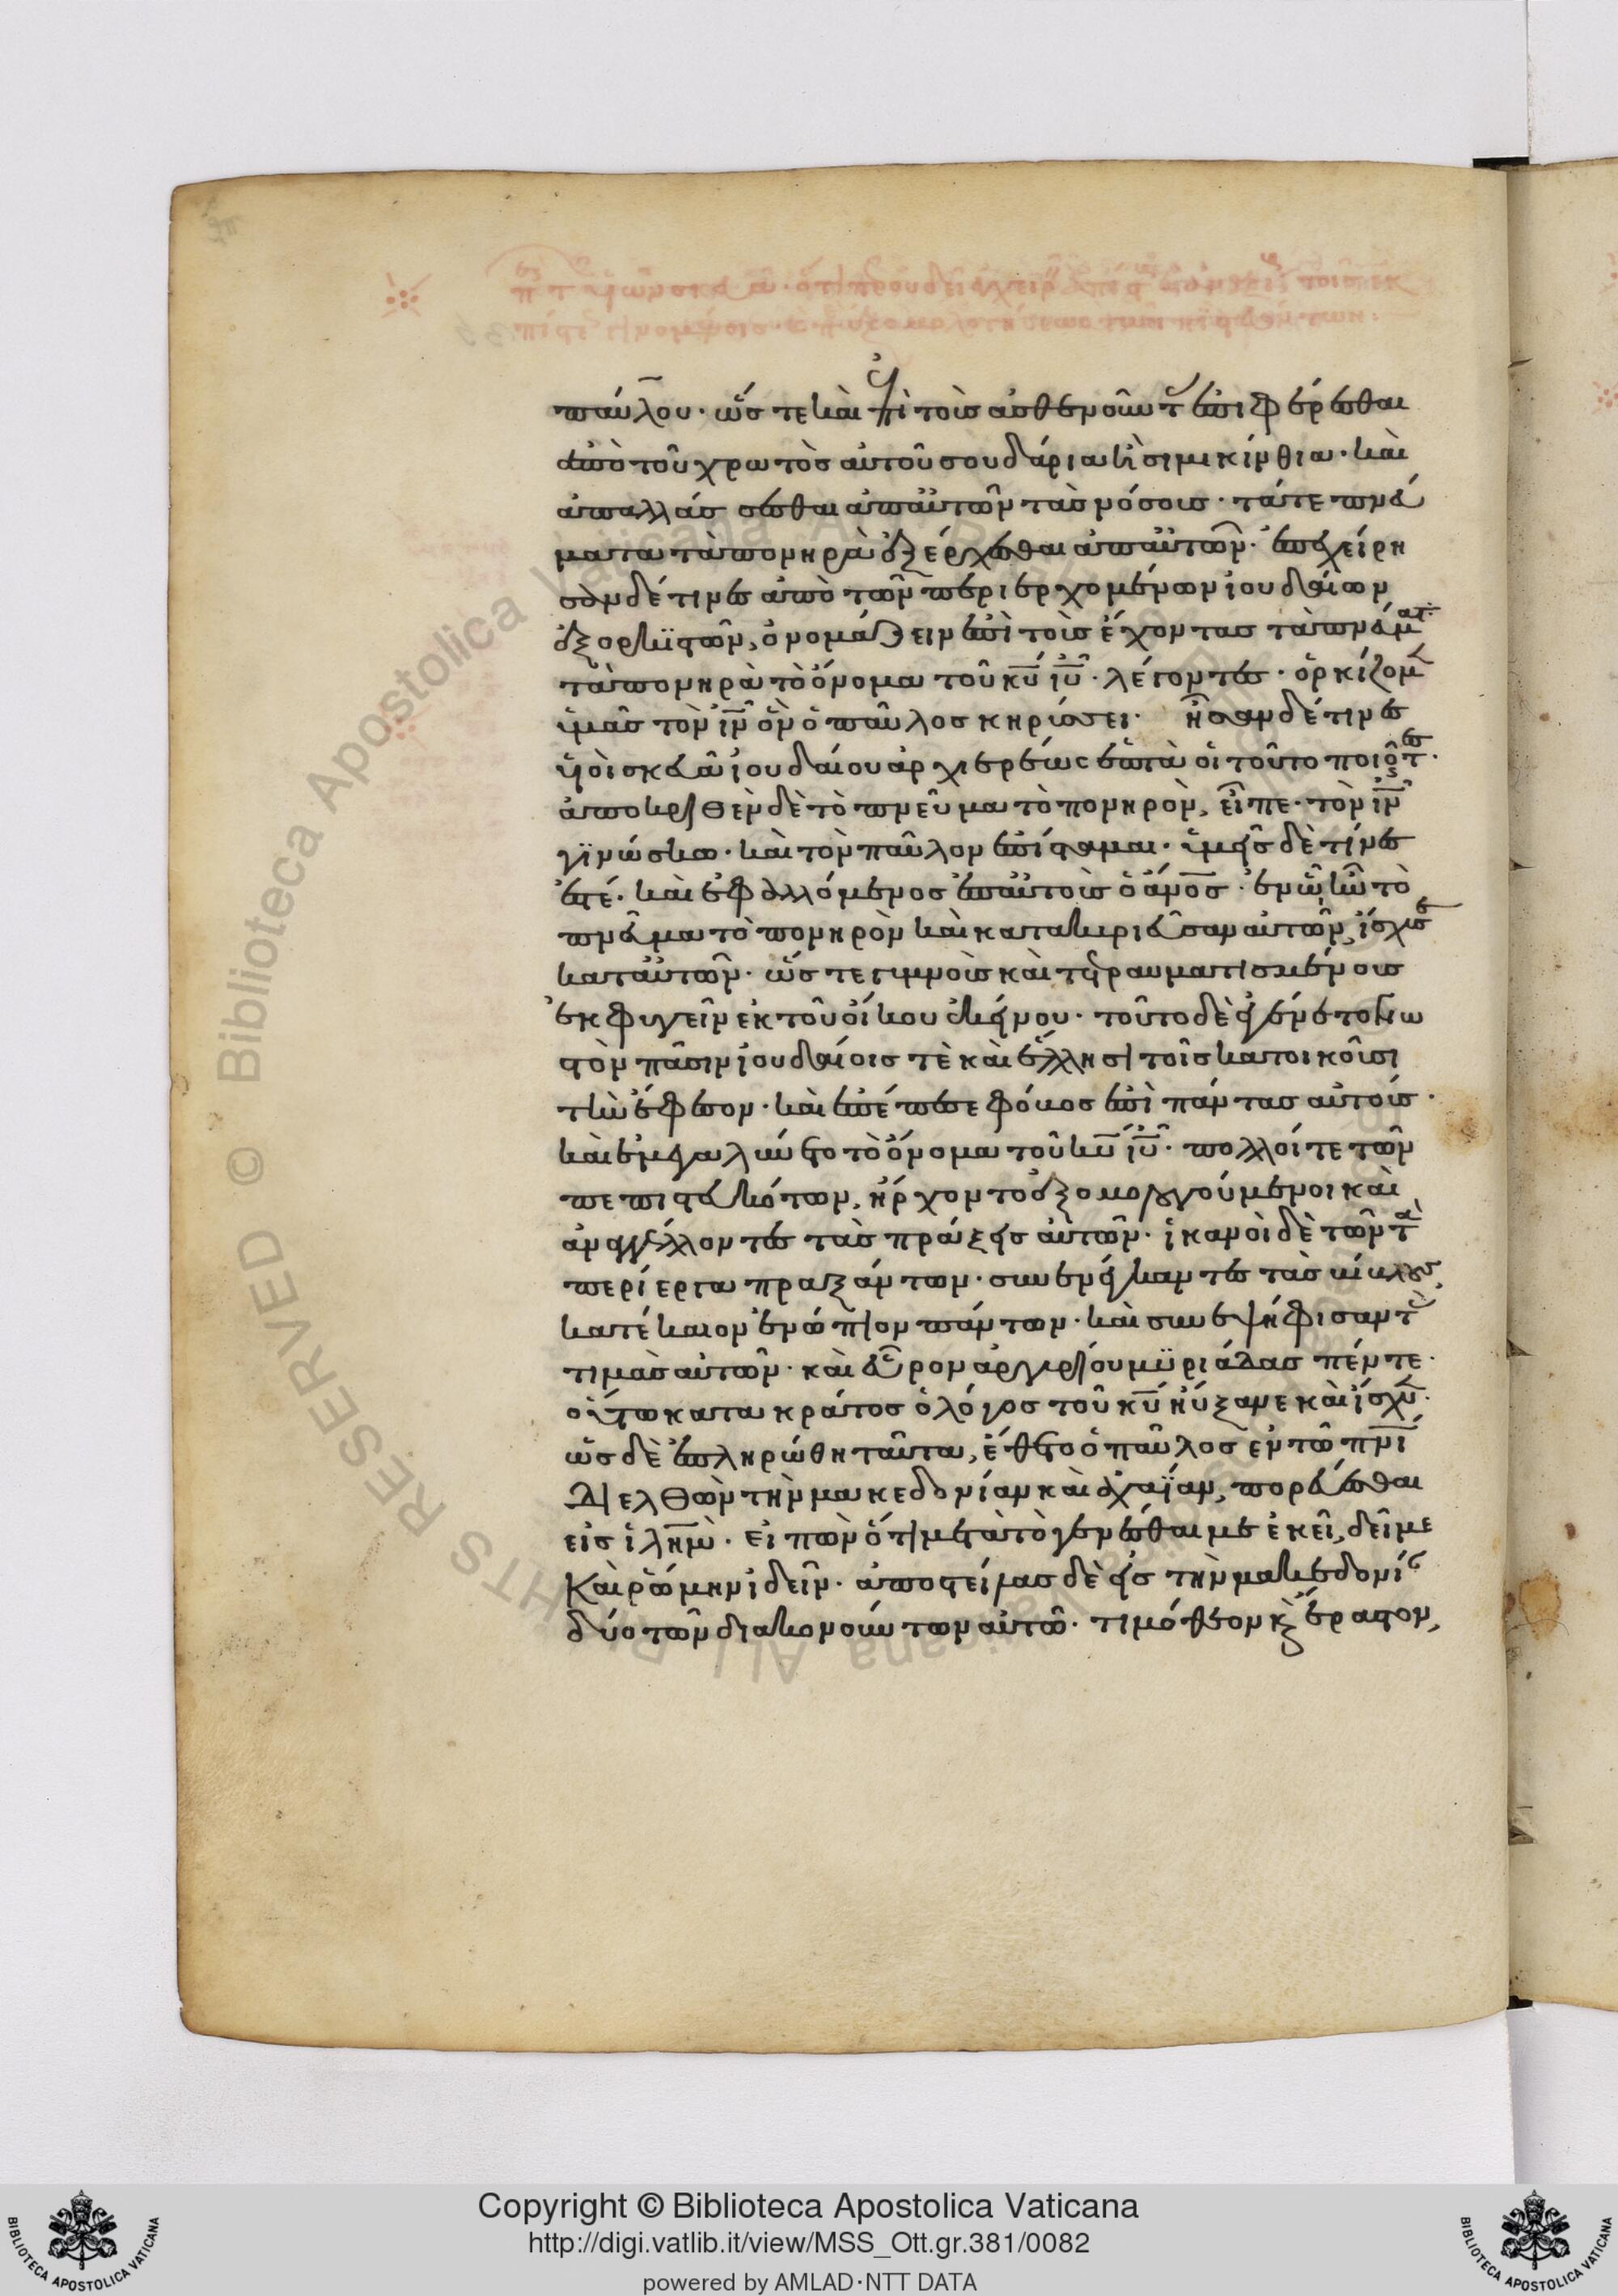 παύλου· ὥστε καὶ ἐπὶ τοὺς ἀσθενοῦντ ἐπιφέρεσθαι
ἀπὸ τοῦ χρωτὸς αὐτοῦ σουδάρια ἢ σιμικίνθια· καὶ
ἀπαλλάσσεσθαι ἀπ αὐτῶν τὰς νόσους· τά τε πνεύ
ματα τὰ πονηρὰ ἐξέρχεσθαι ἀπ αὐτῶν· ἐπεχείρη
σαν δέ τινες ἀπὸ τῶν περιερχομένων ἰουδαίων
ἐξορκϊστῶν, ὀνομάζειν ἐπὶ τοὺς ἔχοντας τὰ πνεύματ
τὰ πονηρὰ τὸ ὄνομα τοῦ κυ ιυ· λέγοντες· ὁρκίζομ
ὑμᾶς τὸν ιν ὃν ὁ παῦλος κηρύσσει· ἦσαν δέ τινες
υἱοὶ σκευᾶ ἰουδαίου ἀρχιερέως ἑπτὰ οἱ τοῦτο ποιοῦντες·
ἀποκριθὲν δὲ τὸ πνεῦμα τὸ πονηρὸν, εἶπε· τὸν ιν
γϊνώσκω· καὶ τὸν παῦλον ἐπίσταμαι· ὑμεῖς δὲ τίνες
ἐστέ· καὶ ἐφαλλόμενος ἐπ αὐτοὺς ὁ ανος· ἐν ὧ ἦν τὸ
πνεῦμα τὸ πονηρὸν καὶ κατακυριεῦσαν αὐτῶν, ἴσχυσε
κατ αὐτῶν· ὥστε γυμνοὺς καὶ τετραυματισμένους
ἐκφυγεῖν ἐκ τοῦ οἴκου ἐκείνου· τοῦτο δὲ ἐγένετο γνω
στὸν πᾶσιν ἰουδαίοις τὲ καὶ ἕλλησι τοῖς κατοικοῦσι
τὴν ἔφεσον· καὶ ἐπέπεσε φόβος ἐπὶ πάντας αὐτούς·
καὶ ἐμεγαλύνετο τὸ ὄνομα τοῦ κυ ιυ· πολλοί τε τῶν
πεπιστευκότων, ἤρχοντο ἐξομολογούμενοι καὶ
ἀναγγέλλοντες τὰς πράξεις αὐτῶν· ἱκανοὶ δὲ τῶν τὰ
περίεργα πραξάντων· συνενέγκαντες τὰς βίβλους,
κατέκαιον ἐνώπιον πάντων· καὶ συνεψήφισαν τὰς
τιμὰς αὐτῶν· καὶ εὗρον ἀργυρίου μϋριάδας πέντε·
οὕτω κατα κράτος ὁ λόγος τοῦ κυ ηὔξανε καὶ ἴσχυ·
ὡς δὲ ἐπληρώθη ταῦτα, ἔθετο ὁ παῦλος ἐν τῶ πνι
διελθὼν τὴν μακεδονίαν καὶ ἀχαΐαν, πορεύεσθαι
εἰς ἱλημ· εἰπὼν ὅτι μετὰ τὸ γενέσθαι με ἐκεῖ, δεῖ με
καὶ ῥώμην ἰδεῖν· ἀποστείλας δὲ εἰς τὴν μακεδονί
δύο τῶν διακονούντων αὐτῶ· τιμόθεον κ ἔραστον,
Copyright © Biblioteca Apostolica Vaticana
http://digi.vatlib.it/view/MSS_Ott.gr.381/0082
powered by AMLAD·NTT DATA